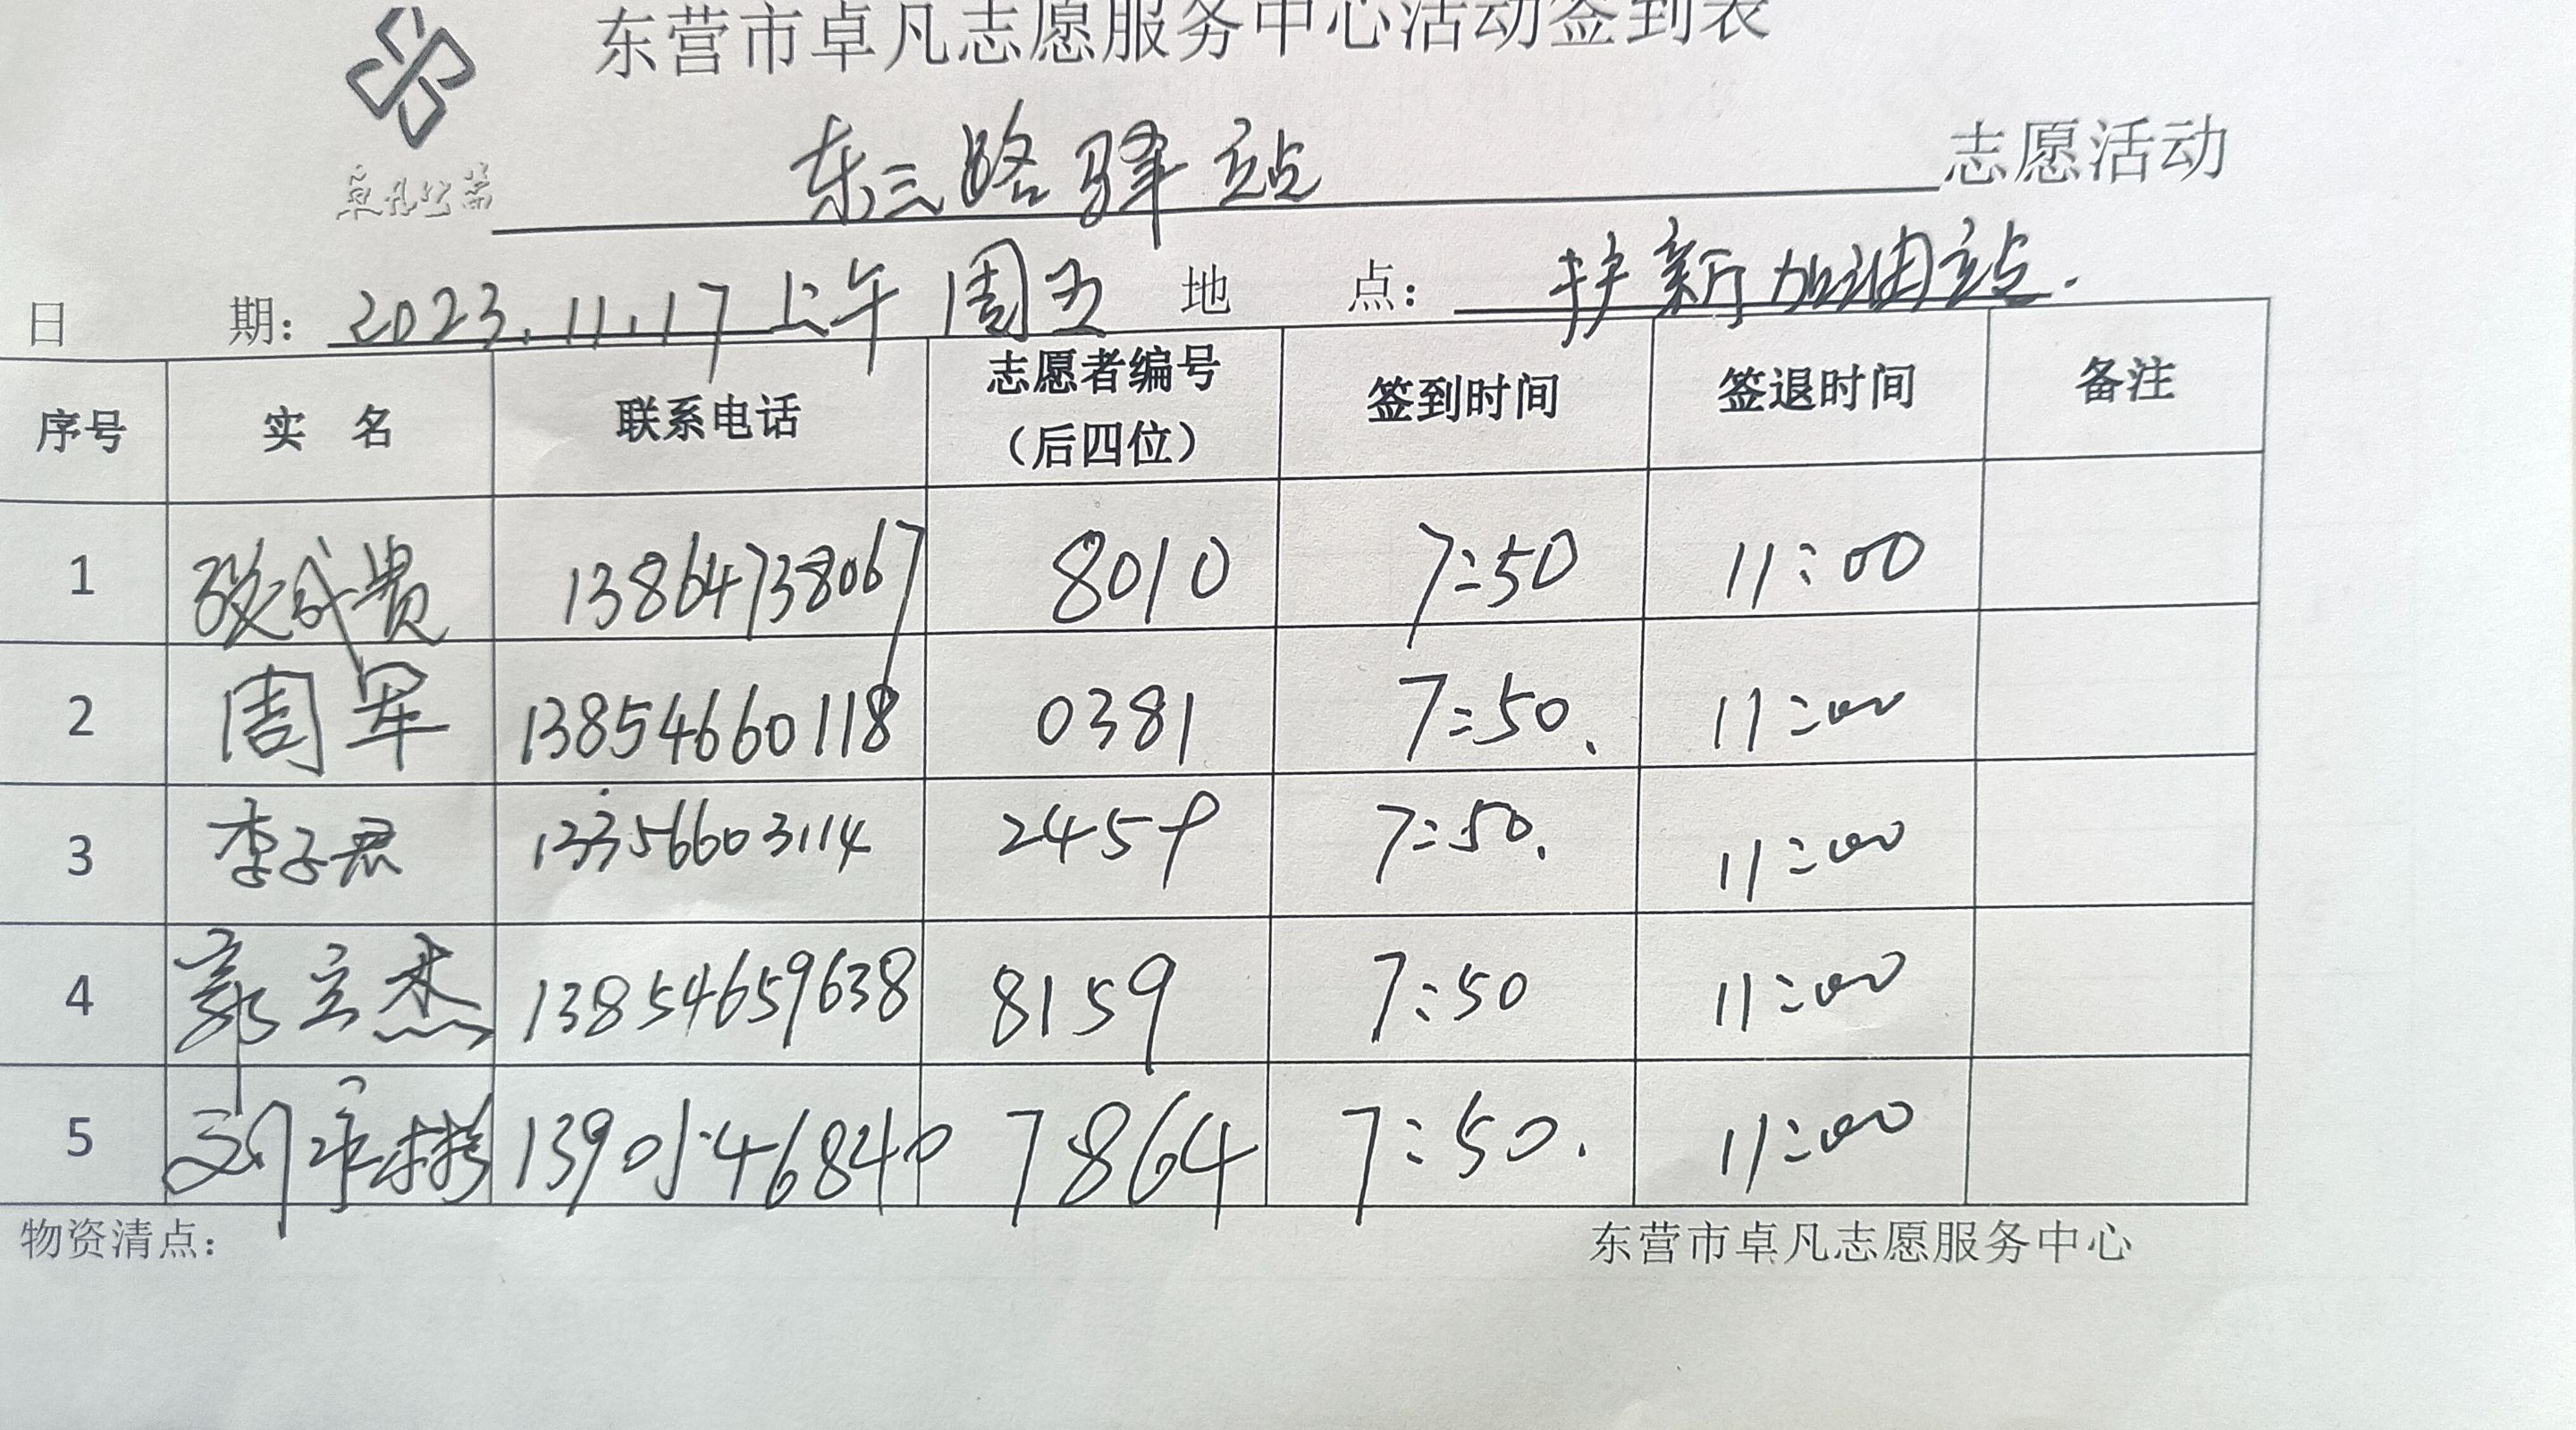 东营市卓凡志愿服务中心活动签到表
卓凡公益
东三路驿站 志愿活动
日 期：2023.11.17上午 周五 地 点：护新加油站.
序号 实 名 联系电话 志愿者编号（后四位） 签到时间 签退时间 备注
1 张成贵 13864738067 8010 7:50 11:00
2 周军 13854660118 0381 7:50. 11:00
3 李子君 13356603114 2459 7:50. 11:00
4 郭立杰 13854659638 8159 7:50 11:00
5 刘 7864 7:50. 11:00
物资清点： 东营市卓凡志愿服务中心